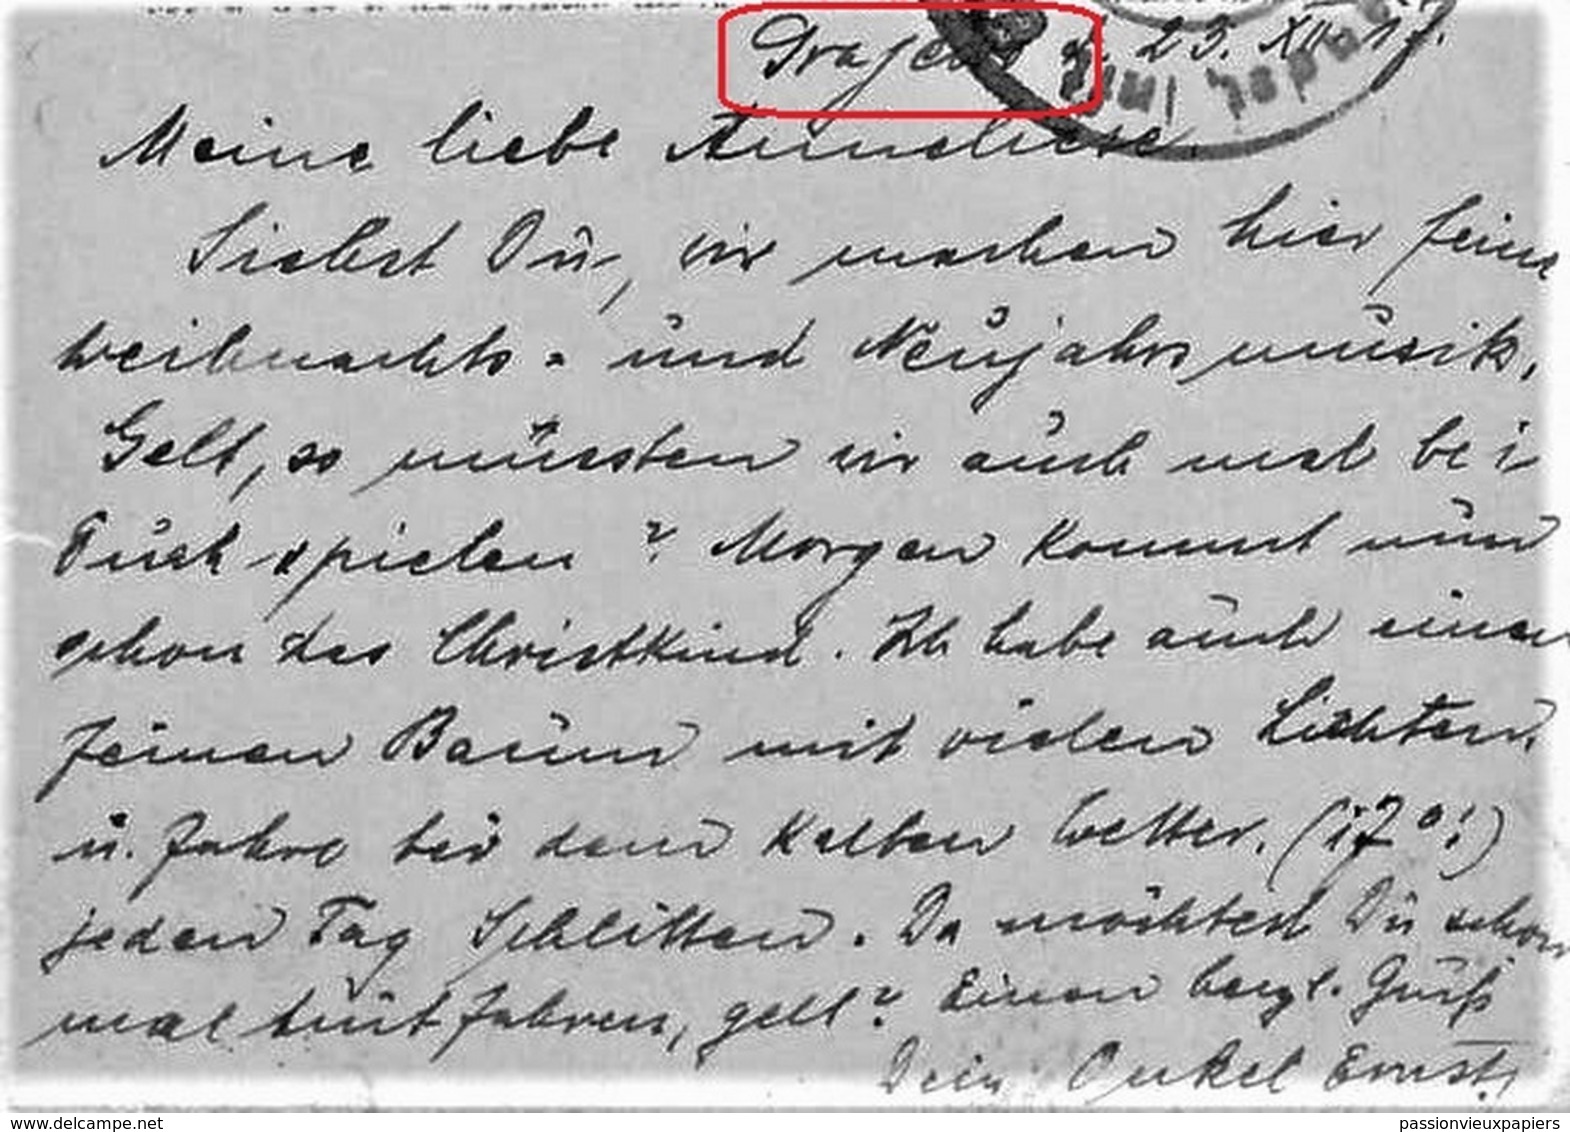 d. 23. XII. 17.
Meine liebe Anneliese.
Siehst Dù, wir machen hier feine
Weihnachts- ùnd Neùjahrsmùsik.
Gelt, so müssten wir aùch mal bei
Eùch spielen? Morgen kommt nùn
schon das Christkind. Ich habe aùch einen
feinen Baùm mit vielen Lichtern
ù. fahre bei dem kalten Wetter. (17°!)
jeden Tag Schlitten. Da möchtest Dù schon
mal mitfahren, gell? Einen herzl. Grùß
Dein Onkel Ernst.
delcampe.net
passionvieuxpapiers